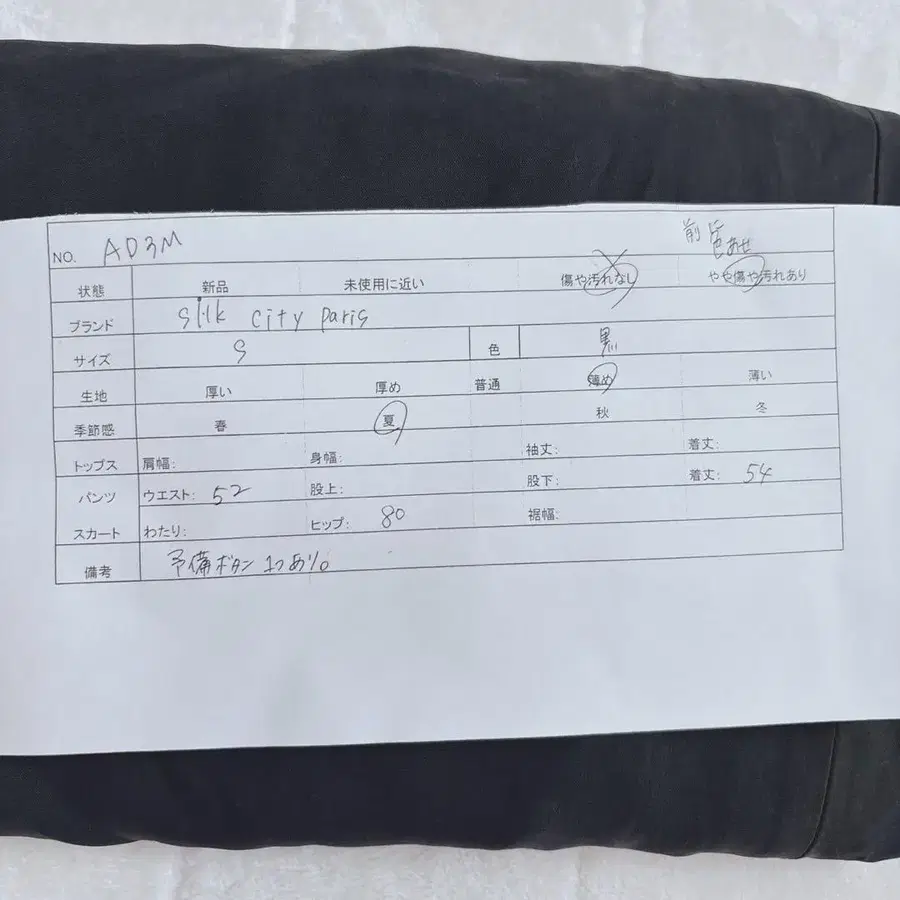 NO. AD3M
前 色あせ
状態 新品 未使用に近い 傷や汚れなし やや傷や汚れあり
ブランド silk city paris
サイズ S 色 黒
生地 厚い 厚め 普通 薄め 薄い
季節感 春 夏 秋 冬
トップス 肩幅: 身幅: 袖丈: 着丈:
パンツ ウエスト: 52 股上: 股下: 着丈: 54
スカート わたり: ヒップ: 80 裾幅:
備考 予備ボタン1つあり。